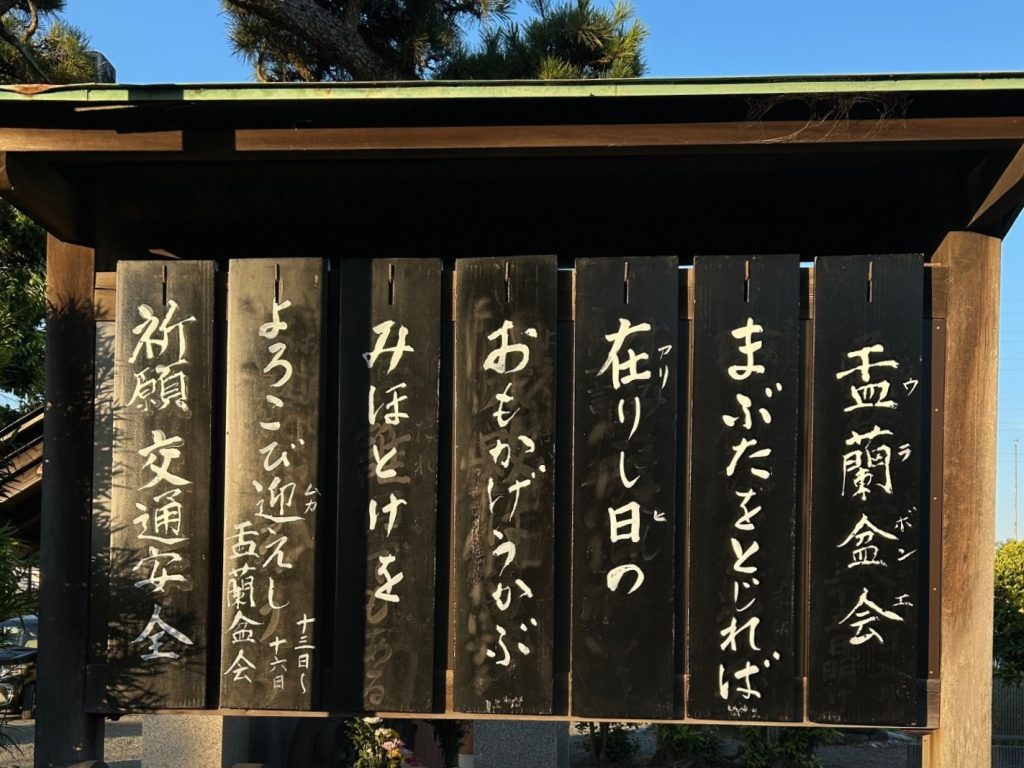 盂蘭盆会
ウラボンエ
まぶたをとじれば
在りし日の
アリ
ヒ
おもかげうかぶ
みほとけを
よろこび迎えし
ムカ
盂蘭盆会
十三日〜
十六日
祈願 交通安全